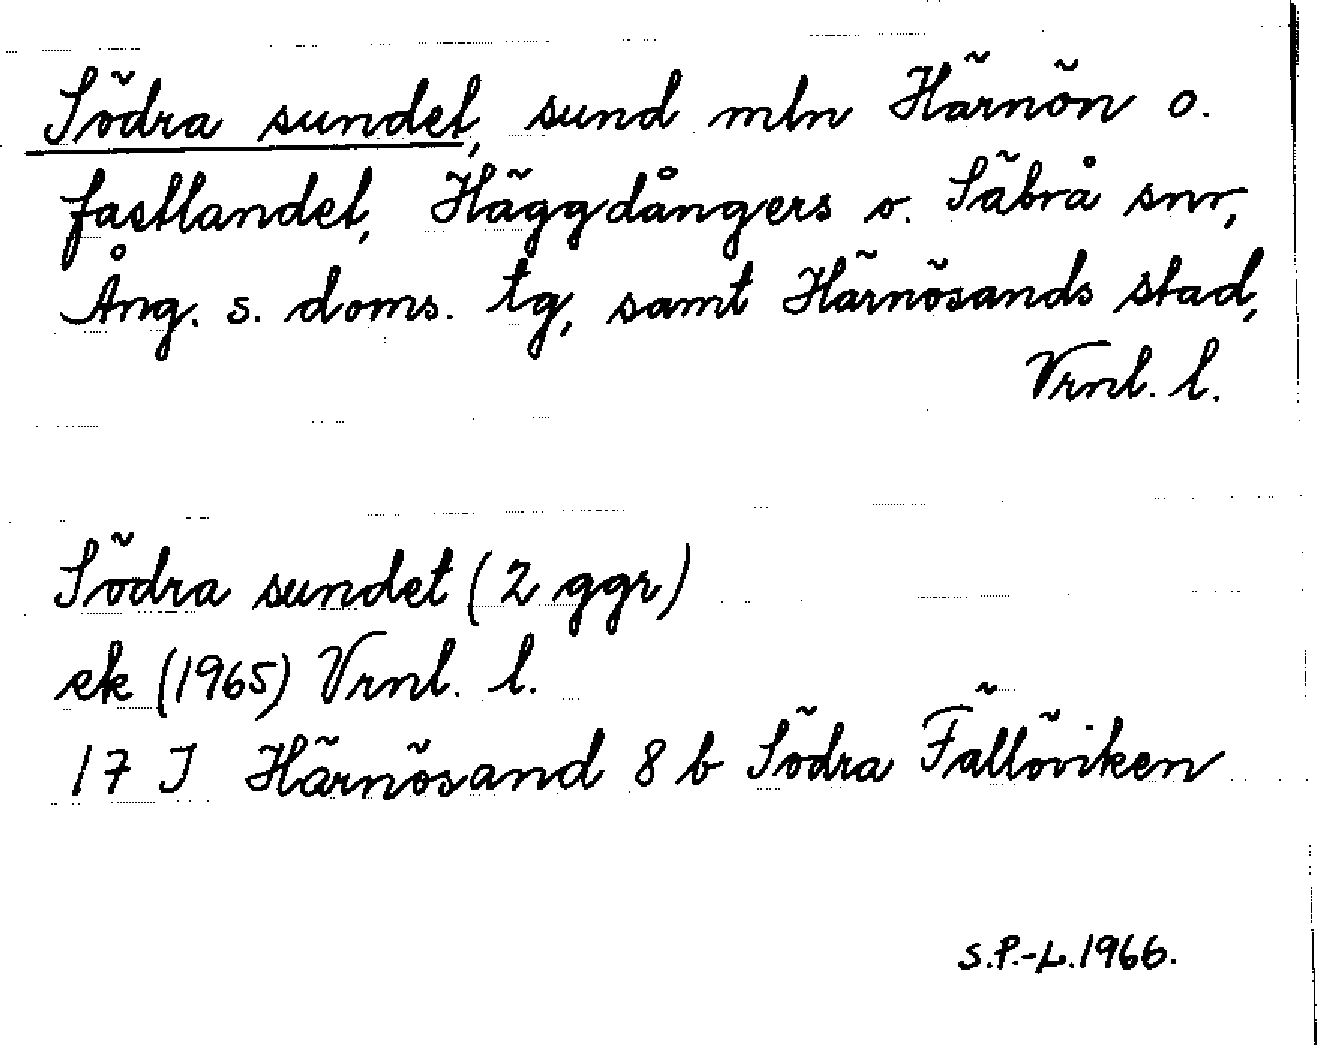 Södra sundet, sund mln Härnön o.
fastlandet, Häggdångers o. Säbrå snr,
Ång. s. doms. tg, samt Härnösands stad,
Vrnl. l.
Södra sundet (2 ggr)
ek (1965) Vrnl. l.
17 J Härnösand 8 b Södra Fällöviken
S.P.-L.1966.